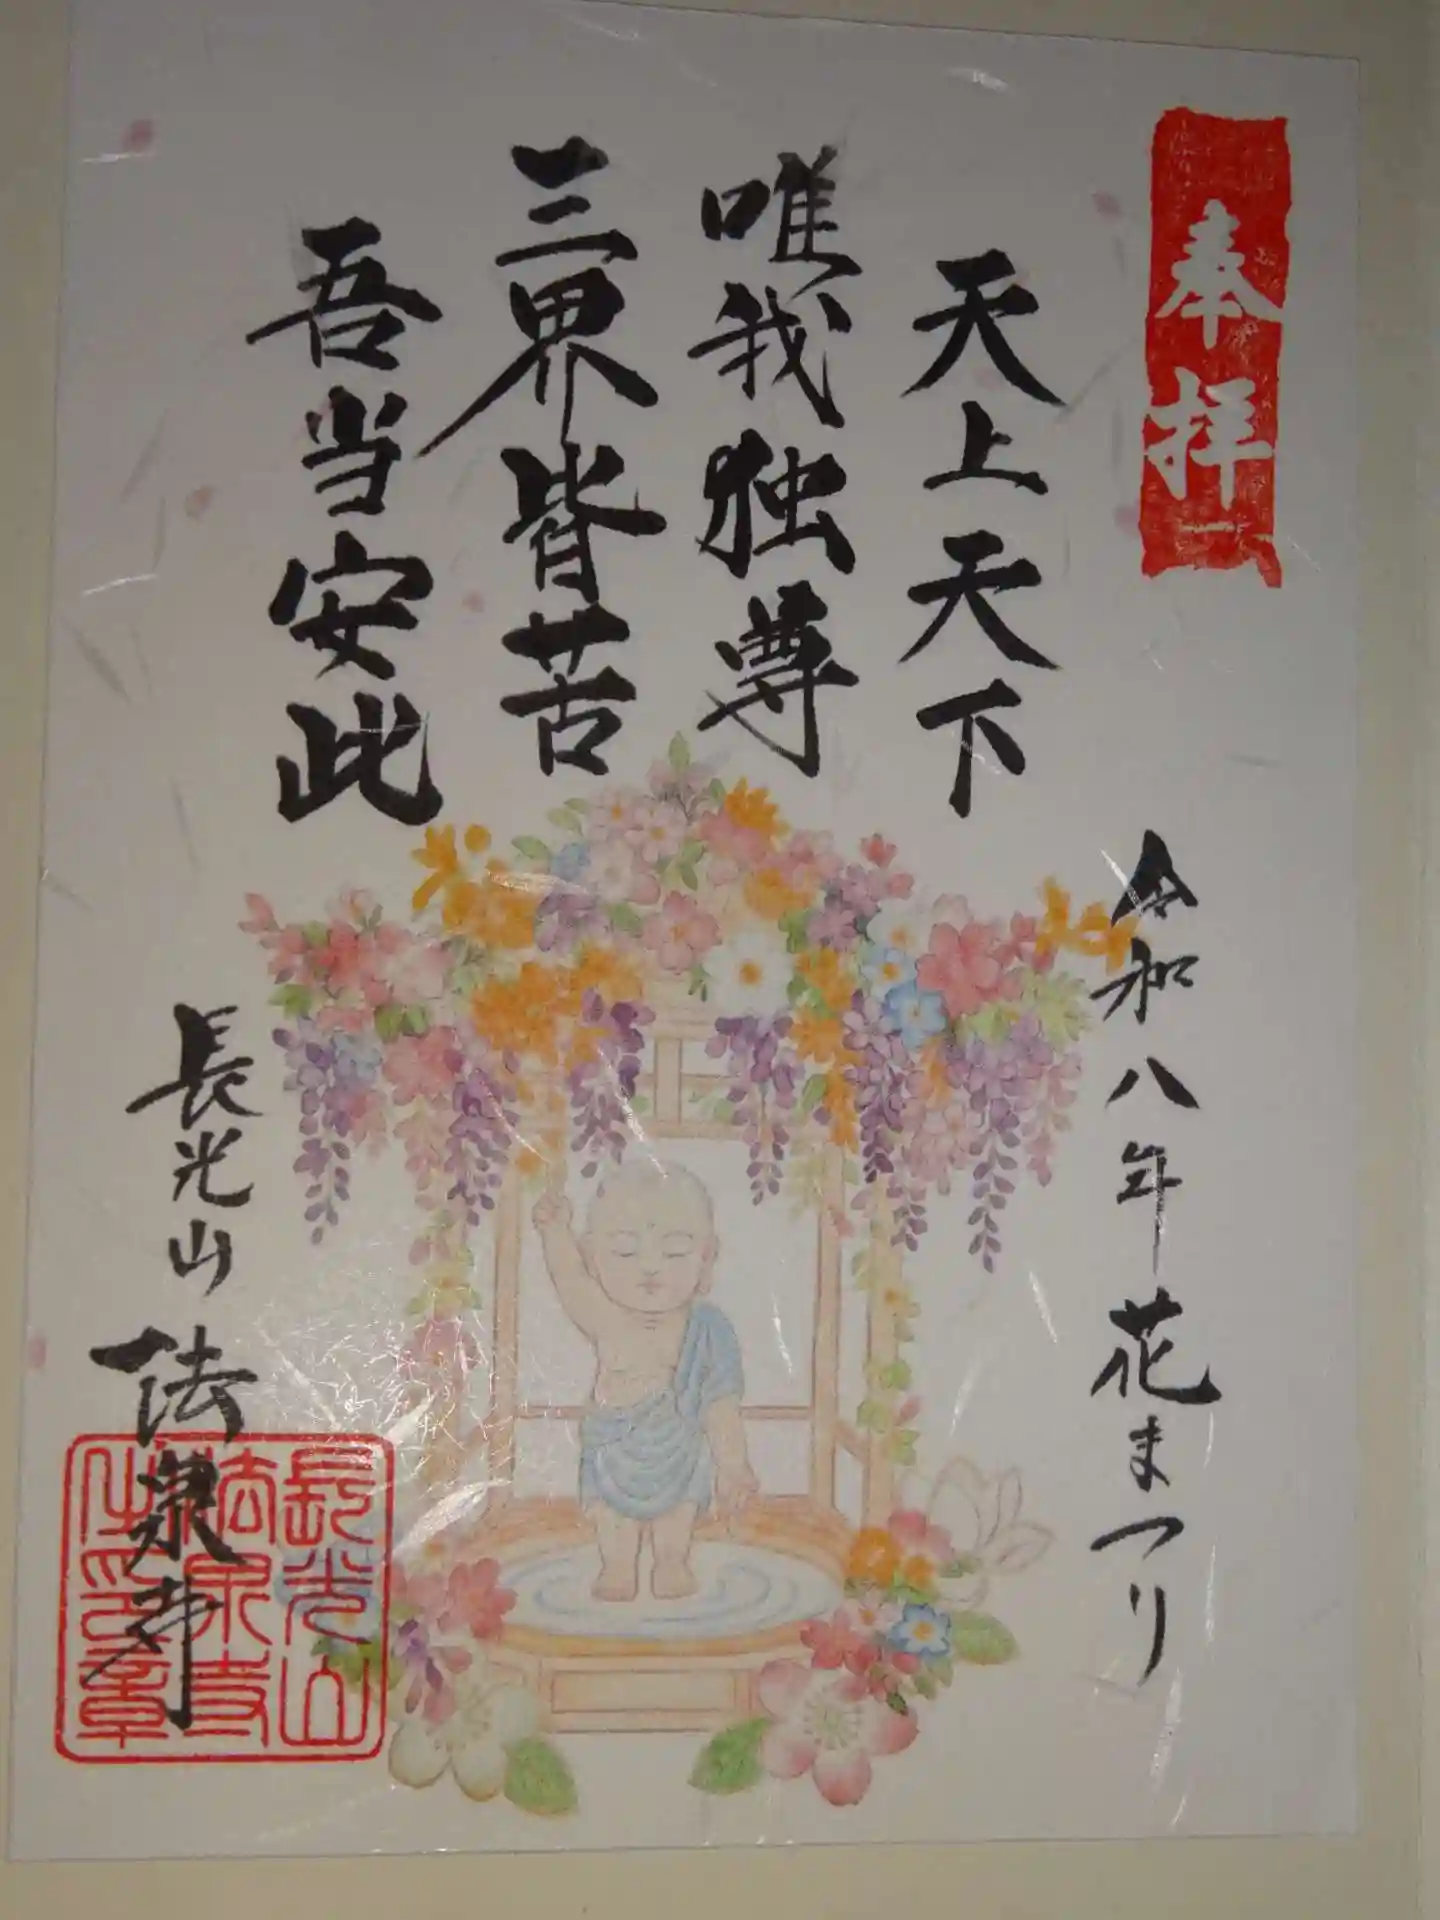 奉拝
天上天下
唯我独尊
三界皆苦
吾当安此
令和八年花まつり
長光山 法泉寺
長光山
法泉寺
之印章